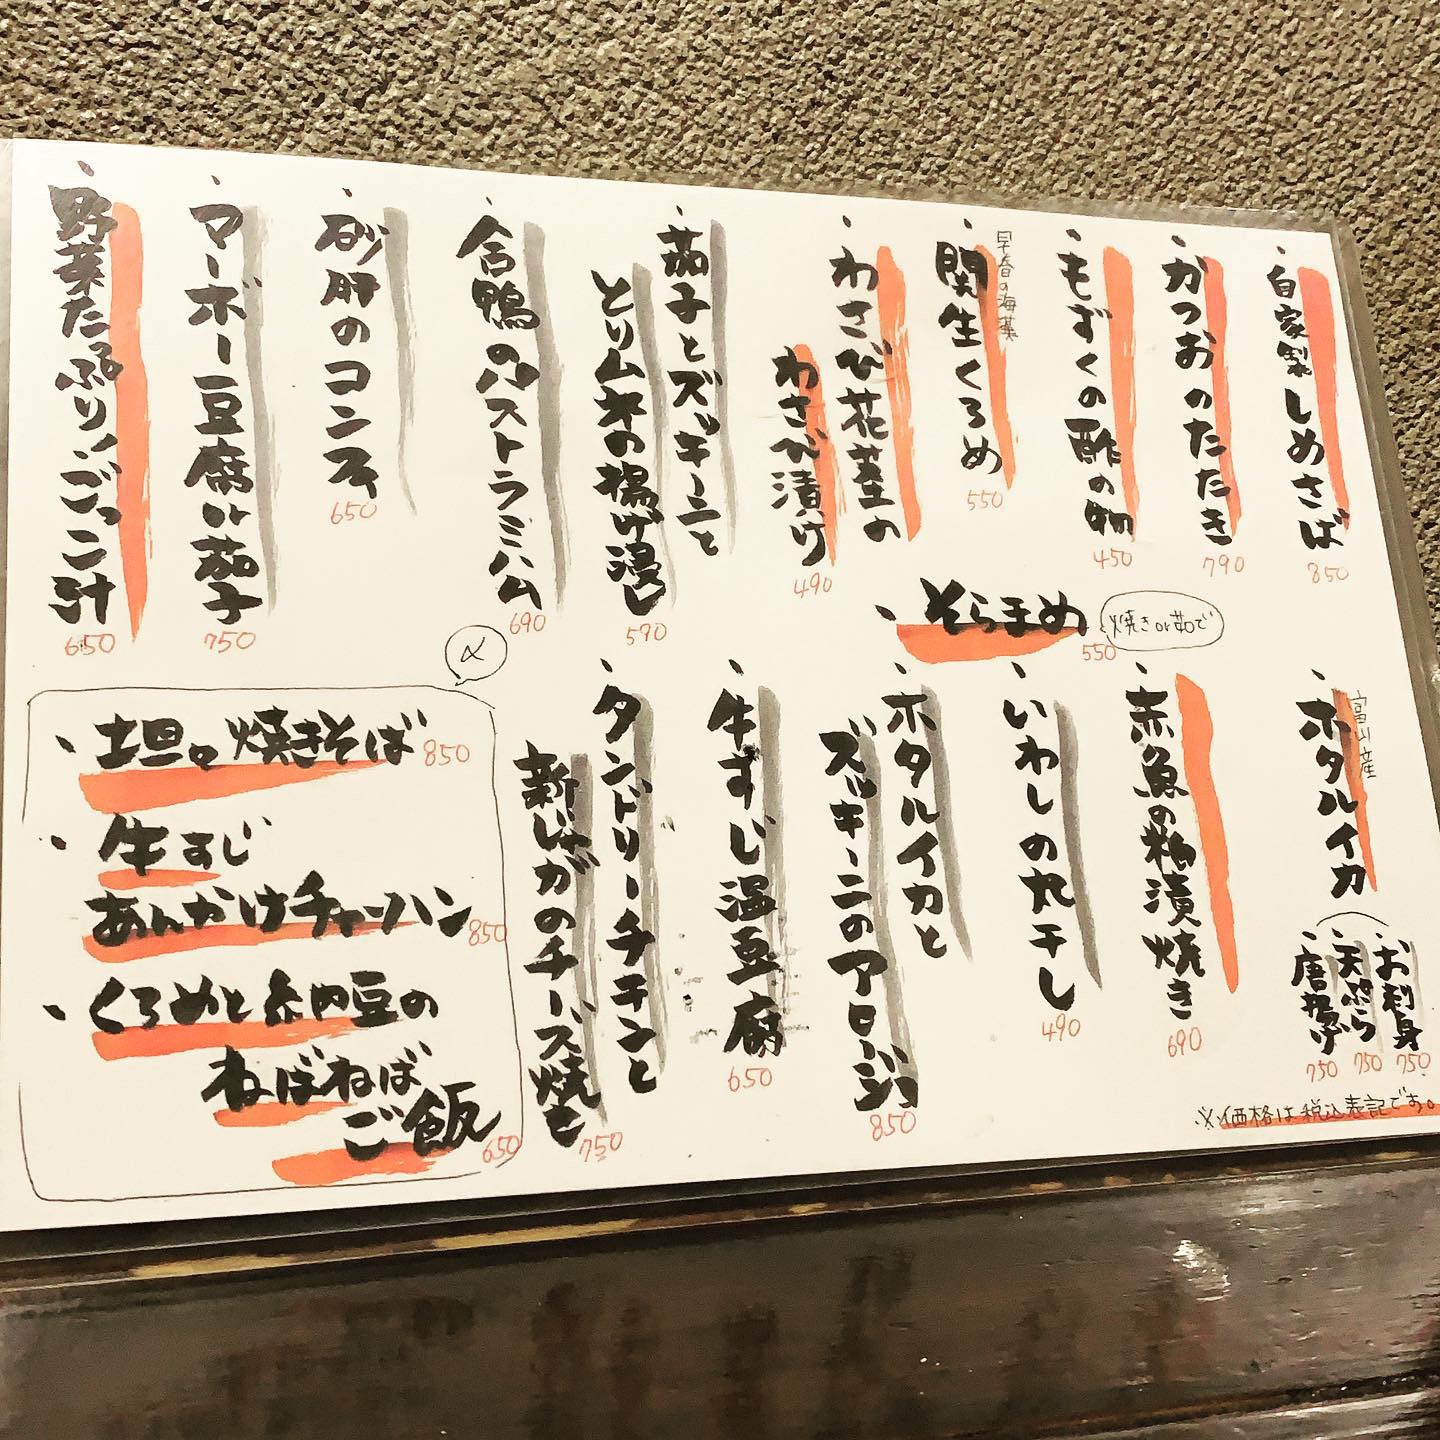 ・自家製しめさば
850
・かつおのたたき
790
・もずくの酢の物
450
早春の海藻
・関生くろめ
550
・わさび花茎の
わさび漬け
490
・茄子とズッキーニと
とりムネの揚げ浸し
590
・合鴨のパストラミハム
690
・砂肝のコンフィ
650
・マーボー豆腐or茄子
750
・野菜たっぷり！ごっこ汁
650
・そらまめ
焼きor茹で
550
富山産
・ホタルイカ
・お刺身
750
・天ぷら
750
・唐揚げ
750
・赤魚の粕漬焼き
690
・いわしの丸干し
490
・ホタルイカと
ズッキーニのアヒージョ
850
・牛すじ温豆腐
650
・タンドリーチキンと
新じゃがのチーズ焼き
750
〆
・担々焼きそば 850
・牛すじ
あんかけチャーハン 850
・くろめと納豆の
ねばねば
ご飯 650
※価格は税込表記です。